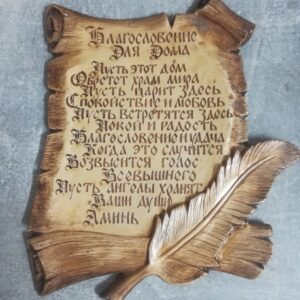 Благословение
Для Дома
Пусть этот дом
Обретет храм мира
Пусть царит здесь
Спокойствие и любовь
Пусть встретятся здесь
Покой и радость
Благословение и удача
Когда это случится
Возвысится голос
Всевышнего
Пусть ангелы хранят
Ваши души
Аминь